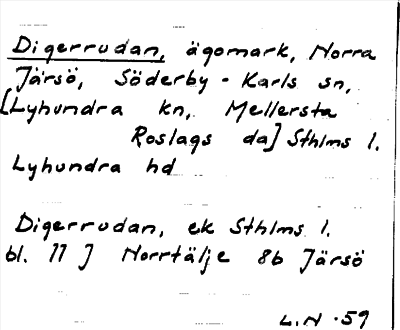 Digerrudan, ägomark, Norra
Järsö, Söderby - Karls sn,
[Lyhundra kn, Mellersta
Roslags da] Sthlms l.
Lyhundra hd
Digerrudan, ek Sthlms l.
bl. 77 J Norrtälje 8b Järsö
L.N -59